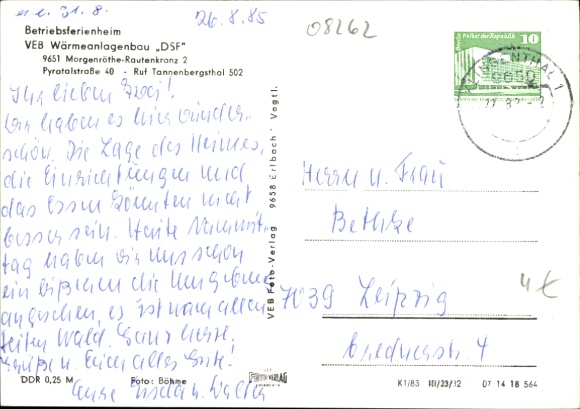 erl. 31.8.
26.8.85
08262
Betriebsferienheim
VEB Wärmeanlagenbau „DSF"
9651 Morgenröthe-Rautenkranz 2
Pyratalstraße 40 - Ruf Tannenbergsthal 502
Ihr lieben Zwei!
Wir haben es hier wunder-
schön. Die Lage des Heimes,
die Einrichtungen und
das Essen könnten nicht
besser sein. Heute Nachmit-
tag haben wir uns schon
ein bißchen die Umgebung
angesehen, es ist nach allen
Seiten Wald. Ganz herzl.
Grüße u. Euch alles Gute!
Eure Gisela u. Walter
DDR 0,25 M
Foto: Böhme
VEB Foto-Verlag 9658 Erlbach Vogtl.
Berlin, Palast der Republik
10
KLINGENTHAL 1
9650
Herrn u. Frau
Bethke
7039 Leipzig
4€
FOTO-VERLAG
K1/83 III/23/12 07 14 18 564